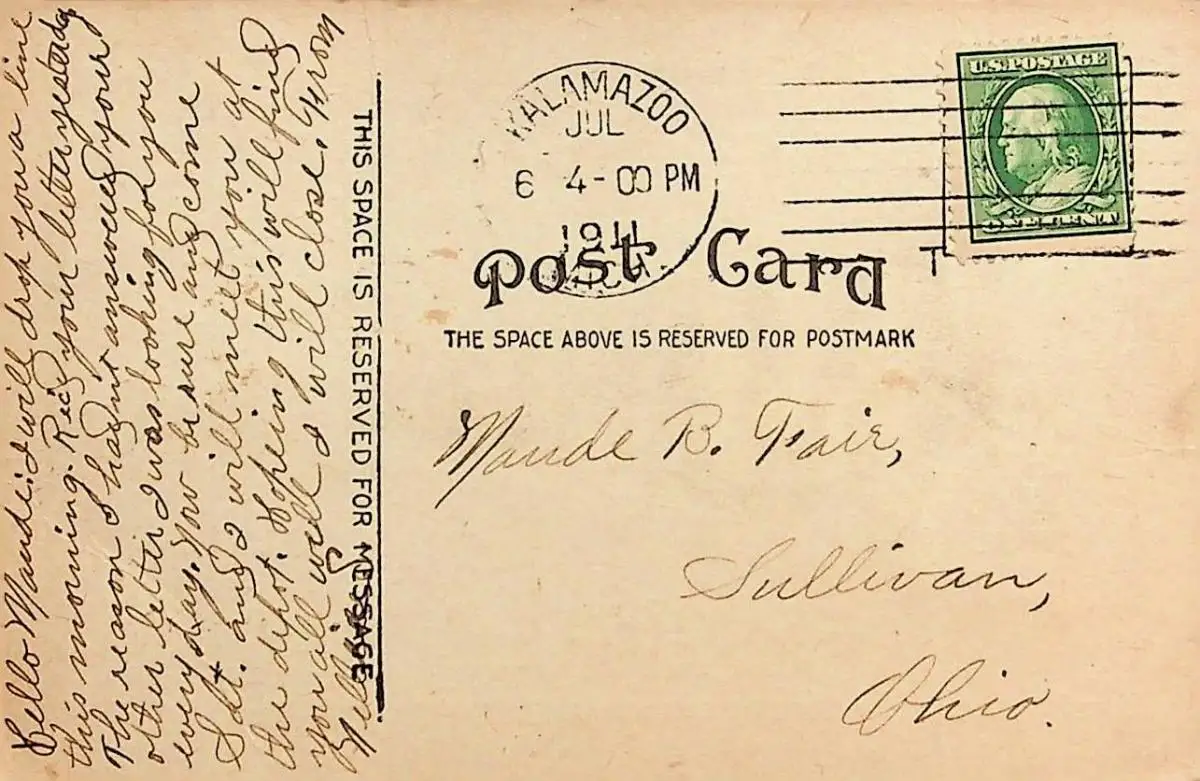 Hello Maude: I will drop you a line
this morning. Recd your letter yesterday
The reason I hadn't answered your
other letter I was looking for you
every day. You be sure and come
Sat. and I will meet you at
the dipot. Hopeing this will find
you all well I will close. From
THIS SPACE IS RESERVED FOR MESSAGE
KALAMAZOO
JUL
6 4-00 PM
1911
MICH.
U.S. POSTAGE
ONE CENT
Post Card
THE SPACE ABOVE IS RESERVED FOR POSTMARK
Maude B. Fair,
Sullivan,
Ohio.